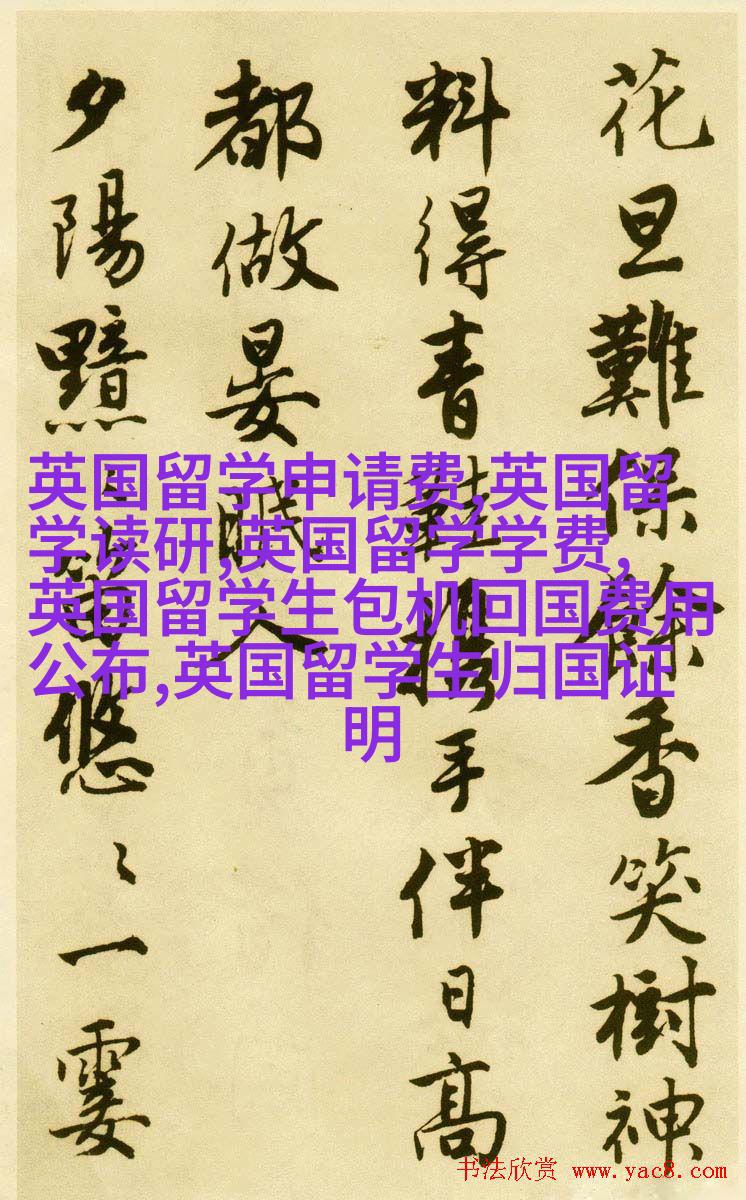 花旦難保餘香笑樹神
料得青鞋携手伴日高
都做晏眠人
夕陽黯〻笛悠〻一霎
英国留学申请费,英国留
学读研,英国留学学费,
英国留学生包机回国费用
公布,英国留学生归国证
明
书法欣赏 www.yac8.com